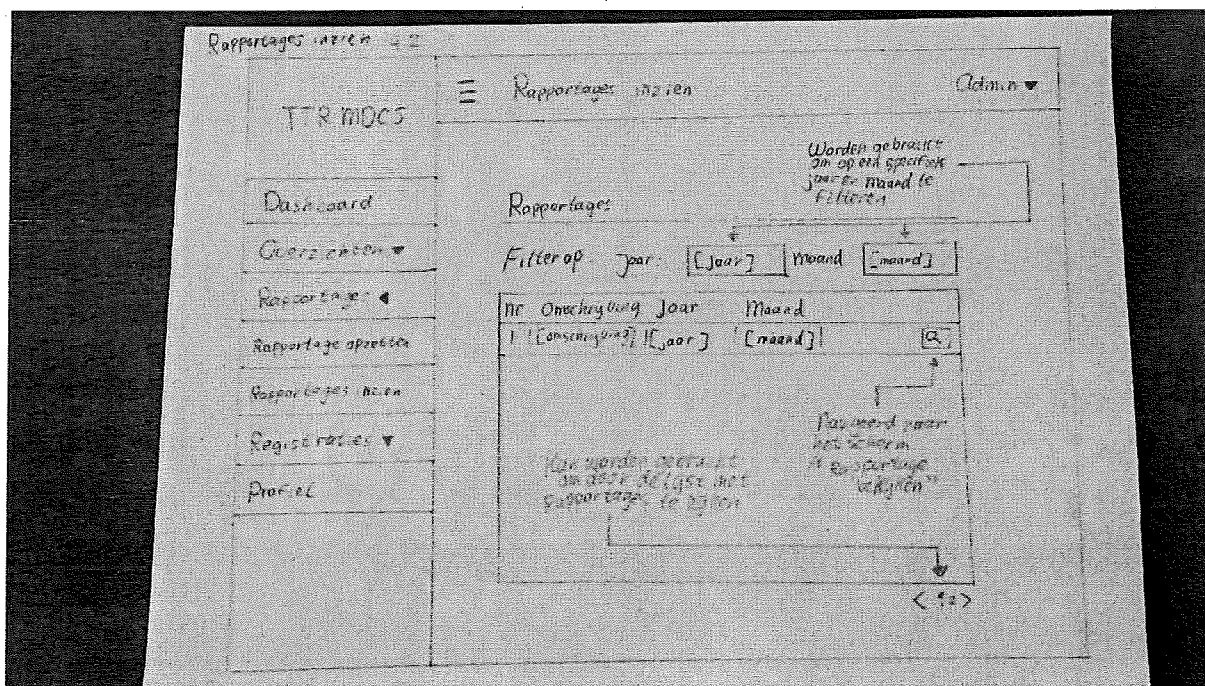 Rapportages inzien
TTR MDCS
Rapportages inzien
Admin ▼
Dashboard
Overzichten ▼
Rapportages ◀
Rapportage opzetten
Rapportages inzien
Registraties ▼
Profiel
Worden gebruikt
om op een specifiek
jaar en maand te
filteren
Rapportages
Filter op. jaar: [jaar] maand [maand]
nr Omschrijving Jaar Maand
1 [omschrijving] [jaar] [maand]
naar
het scherm
"Rapportage
bekijken"
Kan worden gebruikt
om door de lijst met
rapportages te
< 1 2 >